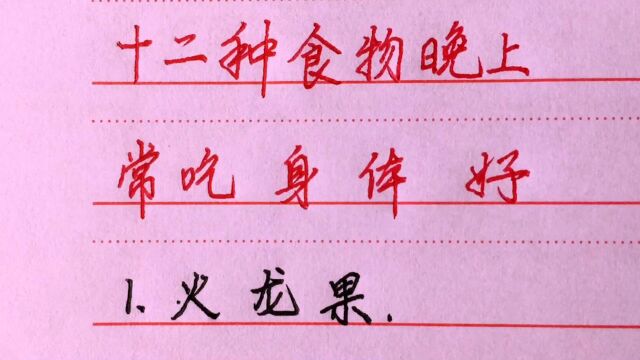 十二种食物晚上
常吃身体好
1.火龙果.